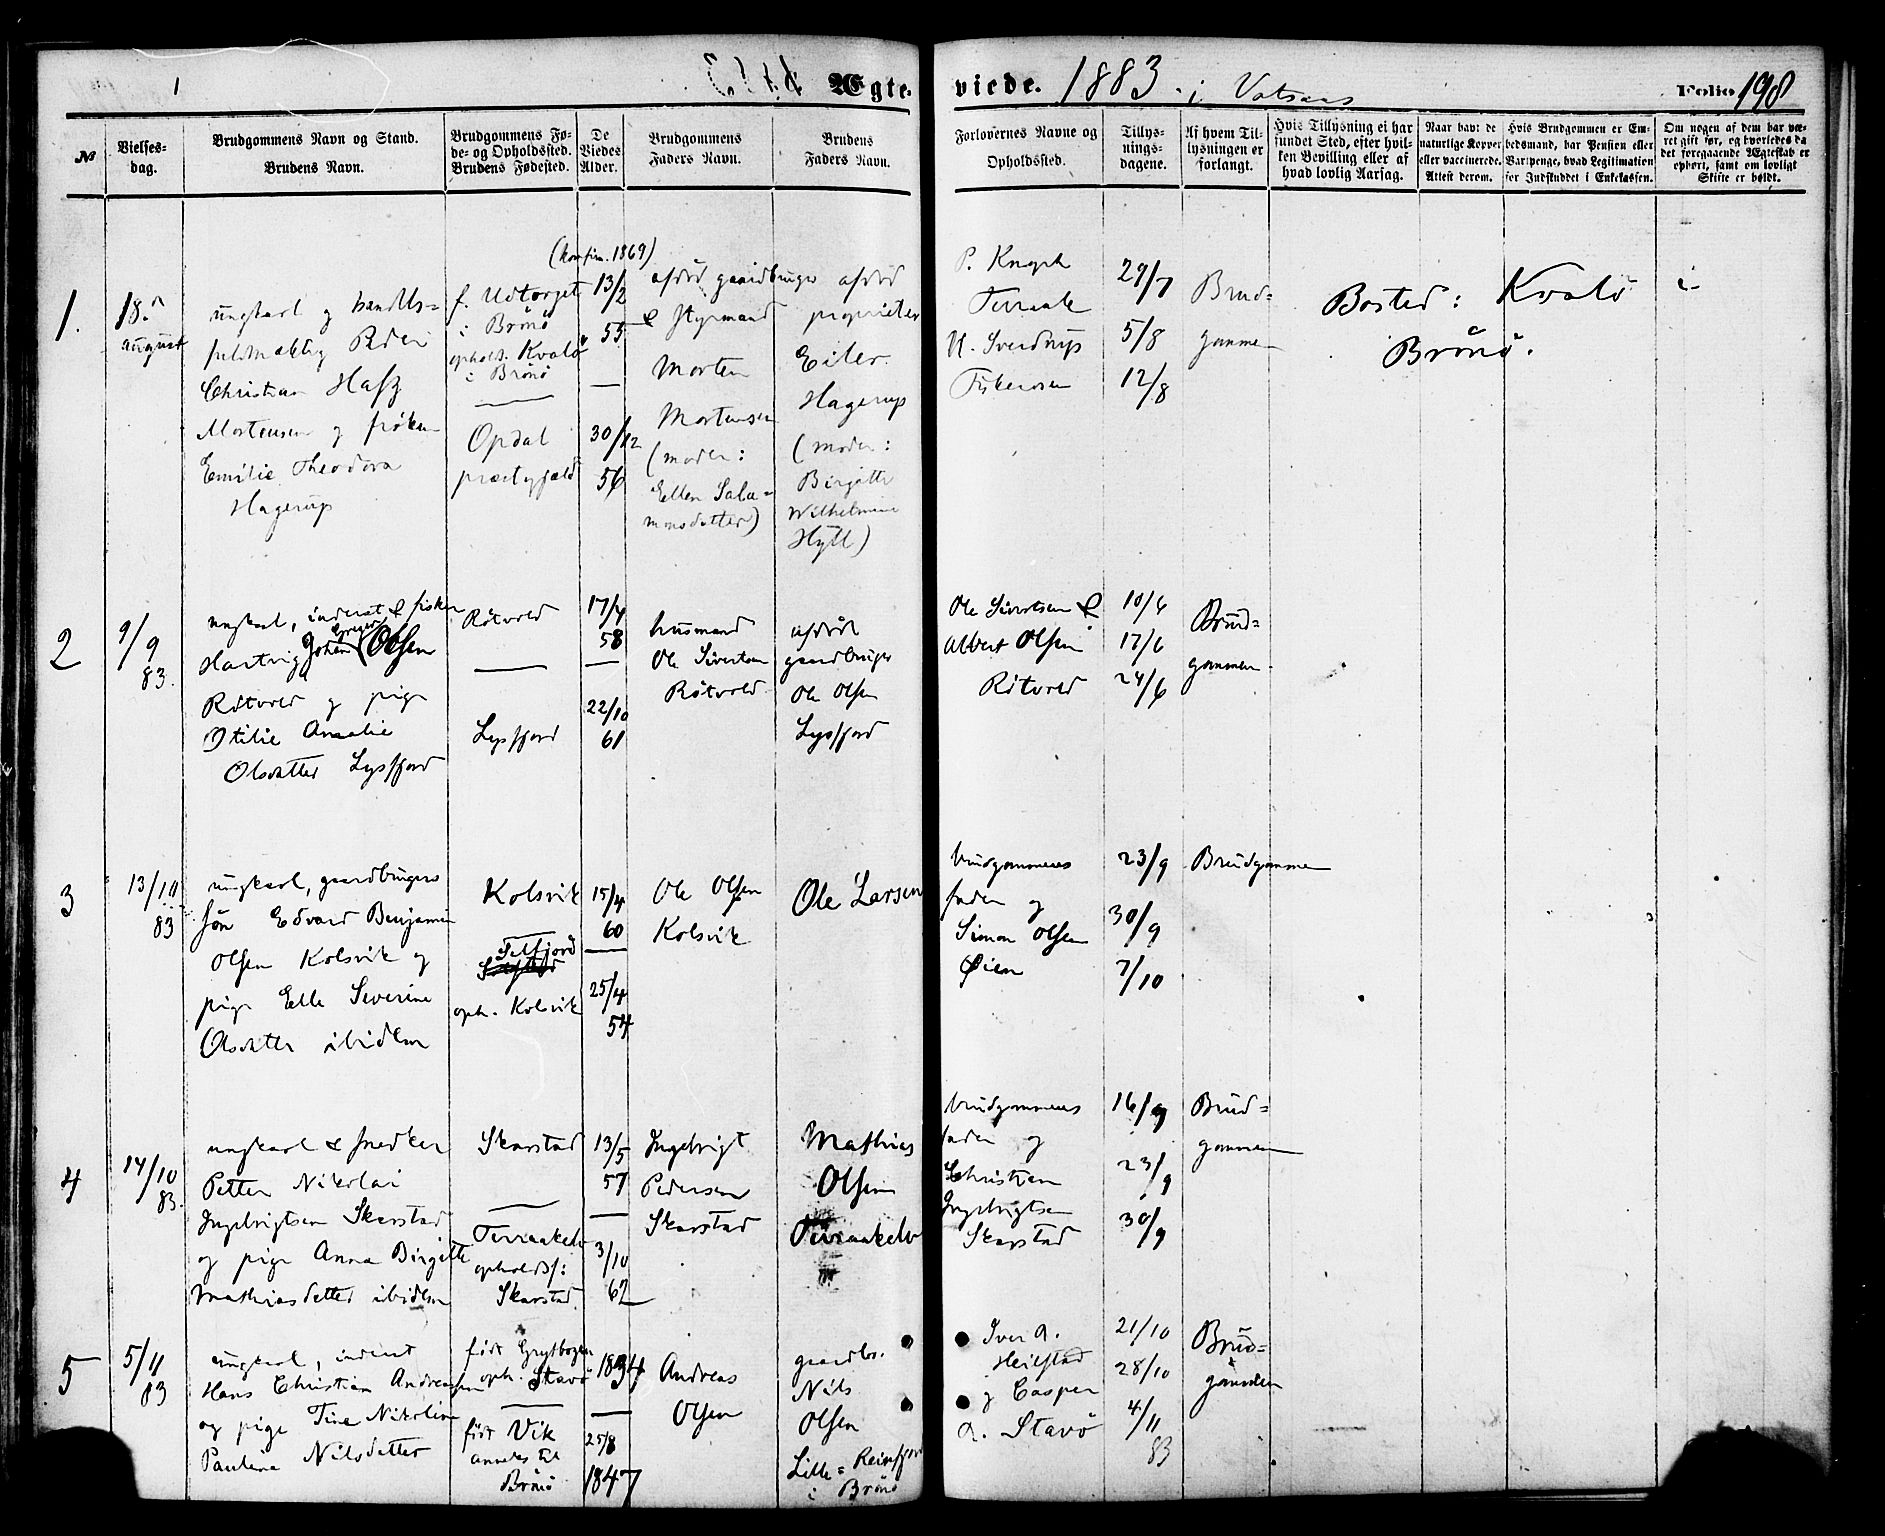 1
Ægte-
viede. 1883. i Vatsaas
Folio 198
№
Vielses-
dag.
Brudgommens Navn og Stand.
Brudens Navn.
Brudgommens Fø-
de- og Opholdssted.
Brudens Fødested.
De
Viedes
Alder.
Brudgommens
Faders Navn.
Brudens
Faders Navn.
Forlovernes Navne og
Opholdssted.
Tillys-
nings-
dagene.
Af hvem Til-
lysningen er
forlangt.
Hvis Tillysning ei har
fundet Sted, efter hvil-
ken Bevilling eller af
hvad lovlig Aarsag.
Naar havt de
naturlige Kopper
eller vaccinerede.
Attest derom.
Hvis Brudgommen er Em-
bedsmand, har Pension eller
Vartpenge, hvad Legitimation
for Indskuddet i Enkekassen.
Om nogen af dem har væ-
ret gift før, og hvorledes da
det foregaaende Ægteskab er
ophørt, samt om lovligt
Skifte er holdt.
1.
18.
august
ungkarl og handels-
fuldmægtig Peder
Christian Hass
Mortensen og frøken
Emilie Theodora
Hagerup
f. Udtorget
i Brönö
ophold. Kvalö
i Brönö
Opdal
præstegjæld
(konfirm. 1869)
13/2
55
30/12
56
afdød gaardbruger
& styrmand
Morten
Mortensen
(moder:
Ellen Salo-
monsdatter)
afdød
proprietær
Eiler
Hagerup
(moder:
Birgitte
Wilhelmine
Hytt)
P.
Terraak
U. Sverdrup
Fiskerosen
29/7
5/8
12/8
Brud-
gommen
Bosted: Kvalö i
Brönö.
2
9/9
83.
ungkarl, inderst & fisker
Hartvig Johan Olsen
Rötvold og pige
Otilie Amalie
Olsdatter Lysfjord
Rötvold
Lysfjord
17/4
58
22/10
61
husmand
Ole Sivertsen
Rötvold
afdød
gaardbruger
Ole Olsen
Lysfjord
Ole Sivertsen &
Albert Olsen
Rötvold
10/6
17/6
24/6
Brud-
gommen
3
13/10
83
ungkarl, gaardbrugers
søn Edvard Benjamin
Olsen Kolsvik og
pige Elle Severine
Olsdatter ibidem
Kolsvik
Selfjord
oph. Kolsvik
15/4
60
25/4
54
Ole Olsen
Kolsvik
Ole Larsen
brudgommens
fader og
Simon Olsen
Øien
23/9
30/9
7/10
Brudgommen
4
14/10
83.
ungkarl & snedker
Petter Nikolai
Ingebrigtsen Skarstad
og pige Anna Birgitte
Mathiasdatter ibidem
Skarstad
Terraakelv
opholdss:
Skarstad.
13/5
57
3/10
62
Ingebrigt
Pedersen
Skarstad
Mathias
Olsen
Terraakelv
brudgommens
fader og
Christian
Ingebrigtsen
Skarstad
16/9
23/9
30/9
Brud-
gommen
5
5/11
83
ungkarl, inderst
Hans Christian Andreassen
og pige Tine Nikoline
Pauline Nilsdatter
født Grytbogen
oph. Stavö
født Vik
annex til
Brönö
1834
25/8
1847
Andreas
Olsen
gaardbr.
Nils
Olsen
Lille-Reinfjord
i Brönö
Iver A.
Heilstad
og Casper
A. Stavö
21/10
28/10
4/11
83
Brud-
gommen